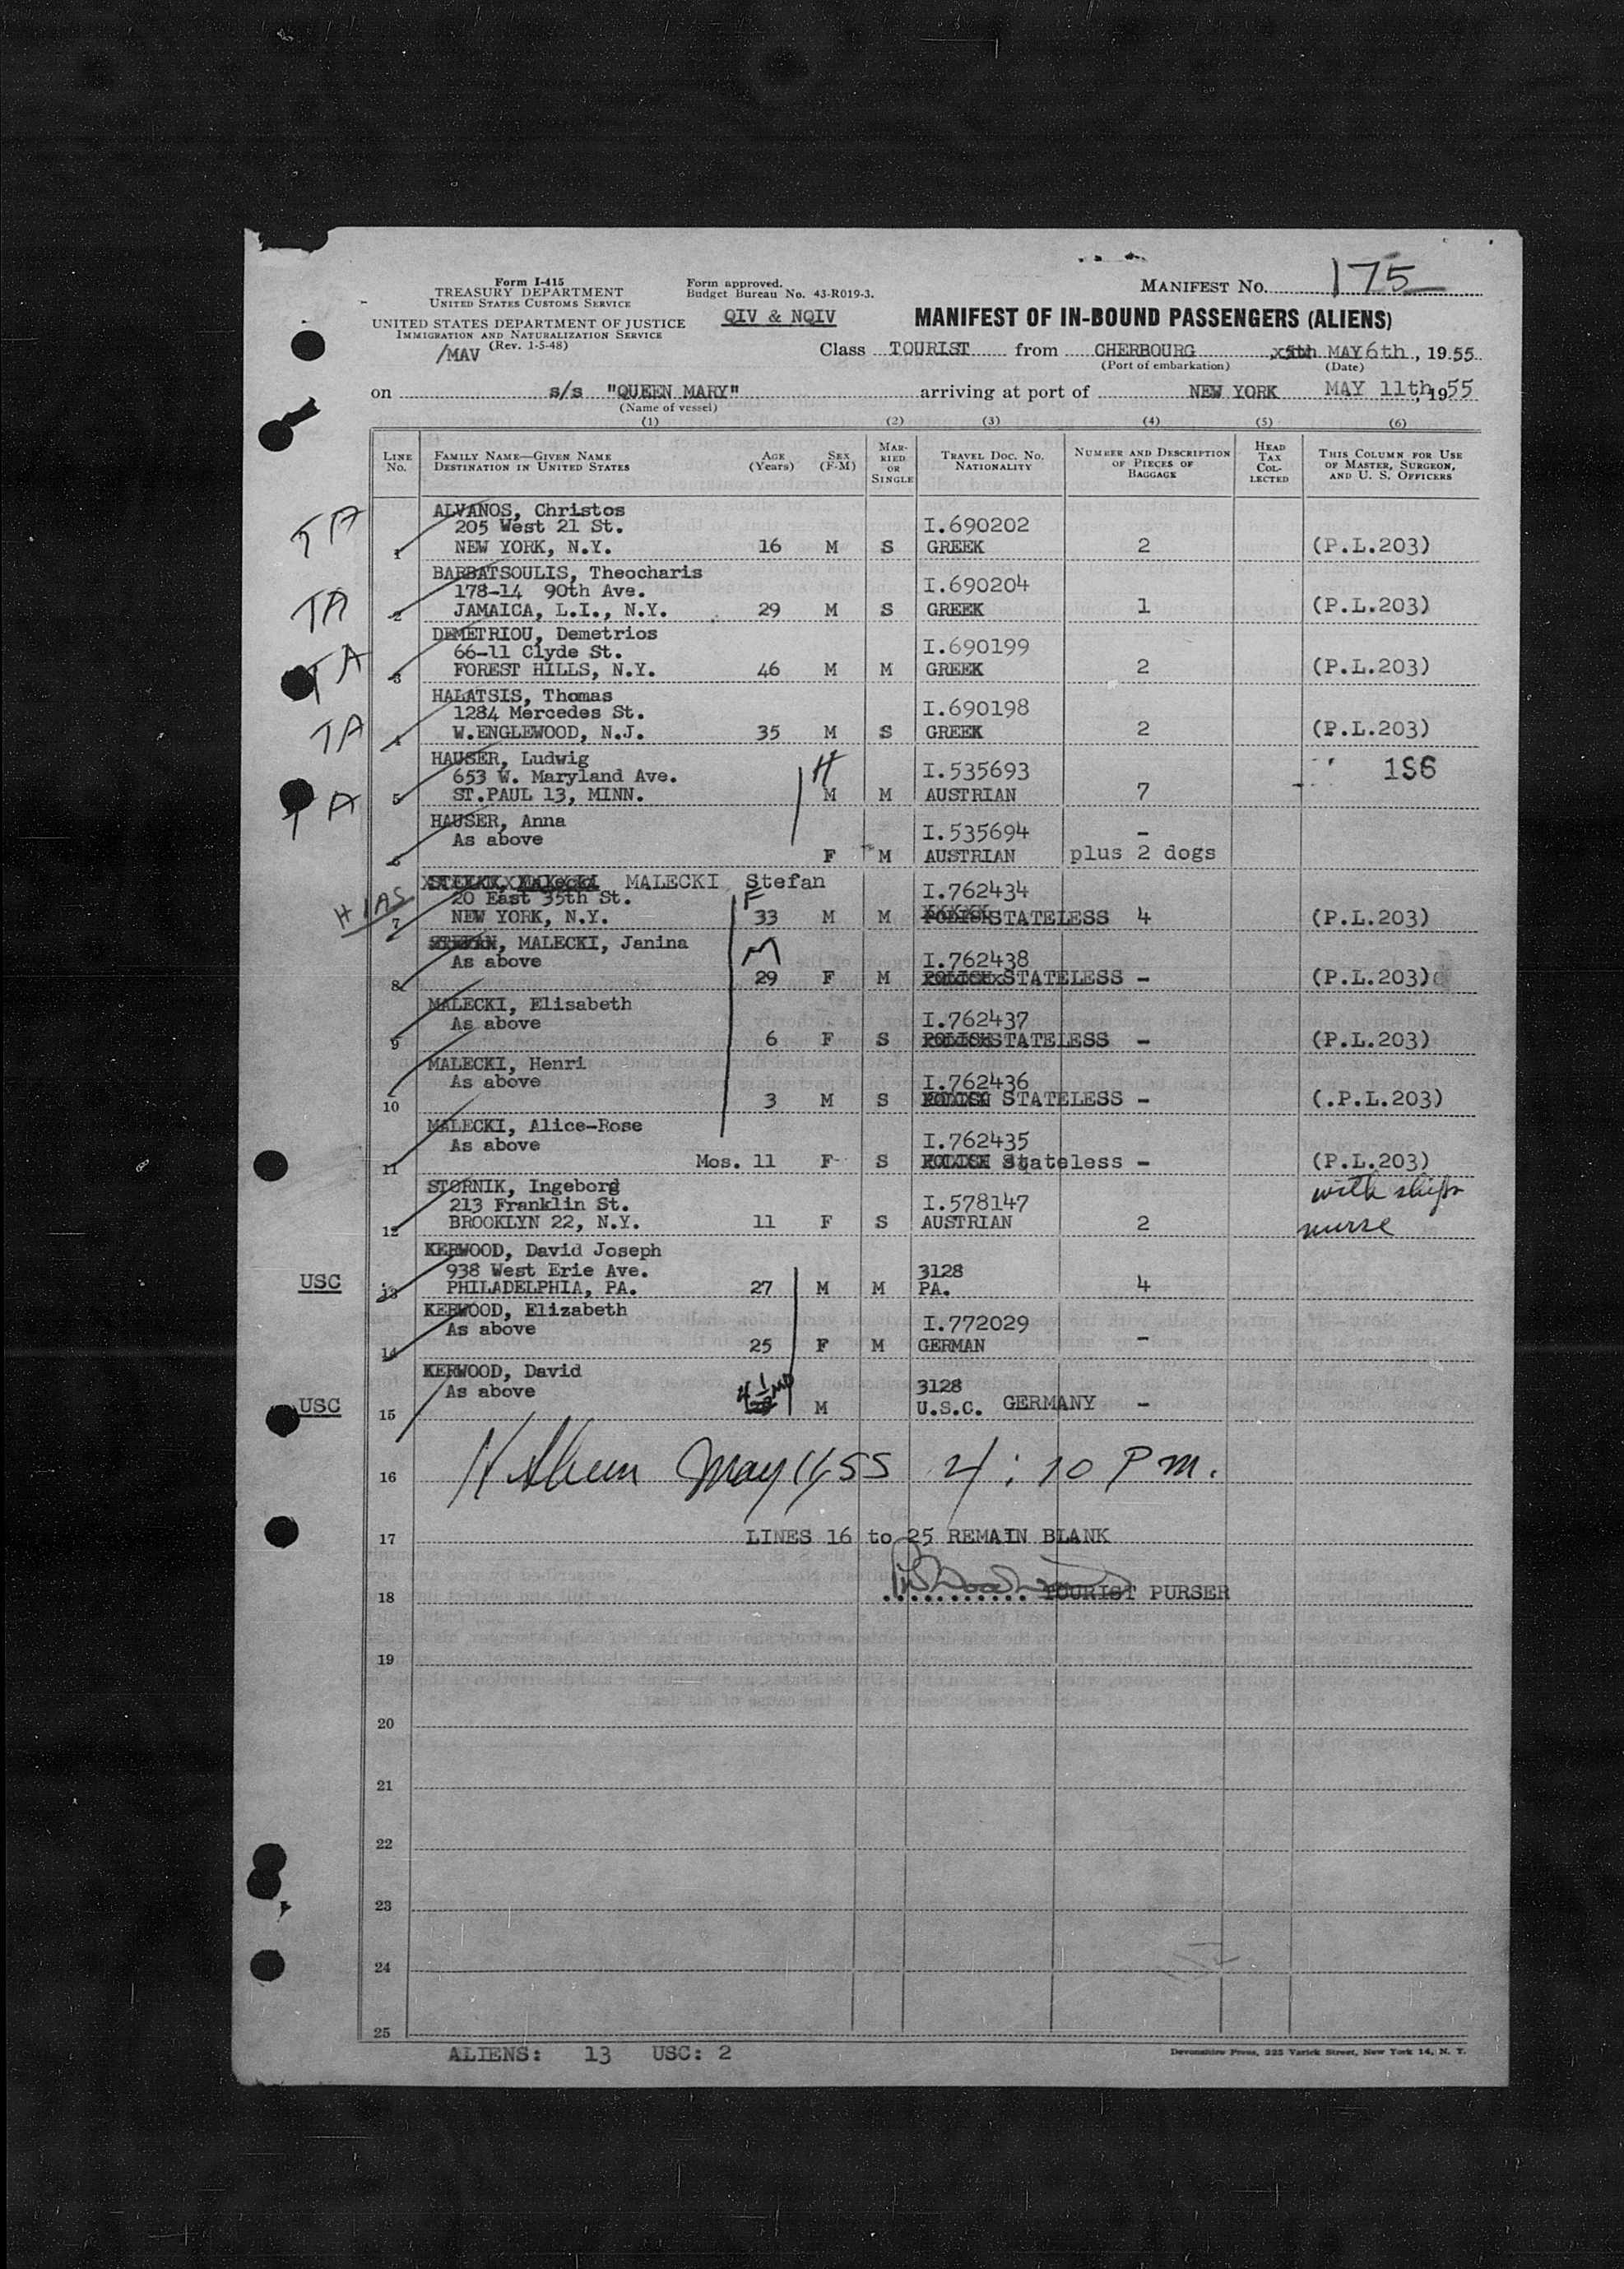 Form I-415
TREASURY DEPARTMENT
UNITED STATES CUSTOMS SERVICE
UNITED STATES DEPARTMENT OF JUSTICE
IMMIGRATION AND NATURALIZATION SERVICE
(Rev. 1-5-48)
/MAV
Form approved.
Budget Bureau No. 43-R019-3.
QIV & NQIV
MANIFEST NO. 175
MANIFEST OF IN-BOUND PASSENGERS (ALIENS)
Class TOURIST from CHERBOURG x5th MAY 6th, 1955
(Port of embarkation) (Date)
on s/s "QUEEN MARY" arriving at port of NEW YORK MAY 11th, 1955
(Name of vessel)
(1) (2) (3) (4) (5) (6)
LINE NO. FAMILY NAME—GIVEN NAME DESTINATION IN UNITED STATES AGE (Years) SEX (F-M) MARRIED OR SINGLE TRAVEL DOC. NO. NATIONALITY NUMBER AND DESCRIPTION OF PIECES OF BAGGAGE HEAD TAX COLLECTED THIS COLUMN FOR USE OF MASTER, SURGEON, AND U. S. OFFICERS
TA ALVANOS, Christos
205 West 21 St. I.690202
1 NEW YORK, N.Y. 16 M S GREEK 2 (P.L.203)
BARBATSOULIS, Theocharis
TA 178-14 90th Ave. I.690204
2 JAMAICA, L.I., N.Y. 29 M S GREEK 1 (P.L.203)
DEMETRIOU, Demetrios
TA 66-11 Clyde St. I.690199
3 FOREST HILLS, N.Y. 46 M M GREEK 2 (P.L.203)
HALATSIS, Thomas
TA 1284 Mercedes St. I.690198
4 W.ENGLEWOOD, N.J. 35 M S GREEK 2 (P.L.203)
HAUSER, Ludwig
TA 653 W. Maryland Ave. H I.535693 1S6
5 ST.PAUL 13, MINN. M M AUSTRIAN 7
HAUSER, Anna
As above I.535694 -
6 F M AUSTRIAN plus 2 dogs
STEFAN, Malecki MALECKI Stefan
HIAS 20 East 35th St. F I.762434
7 NEW YORK, N.Y. 33 M M POLISH STATELESS 4 (P.L.203)
STEFAN, MALECKI, Janina
As above M I.762438
8 29 F M POLISH STATELESS - (P.L.203)
MALECKI, Elisabeth
As above I.762437
9 6 F S POLISH STATELESS - (P.L.203)
MALECKI, Henri
As above I.762436
10 3 M S POLISH STATELESS - (.P.L.203)
MALECKI, Alice-Rose
As above I.762435
11 Mos. 11 F S POLISH Stateless - (P.L.203)
STORNIK, Ingeborg with ships
213 Franklin St. I.578147
12 BROOKLYN 22, N.Y. 11 F S AUSTRIAN 2 nurse
KERWOOD, David Joseph
USC 938 West Erie Ave. 3128
13 PHILADELPHIA, PA. 27 M M PA. 4
KERWOOD, Elizabeth
As above I.772029
14 25 F M GERMAN -
KERWOOD, David
As above 3128
USC 15 M U.S.C. GERMANY -
16 May 11, 55 4:10 Pm.
17 LINES 16 to 25 REMAIN BLANK
18 TOURIST PURSER
19
20
21
22
23
24
25
ALIENS: 13 USC: 2
Devonshire Press, 225 Varick Street, New York 14, N. Y.